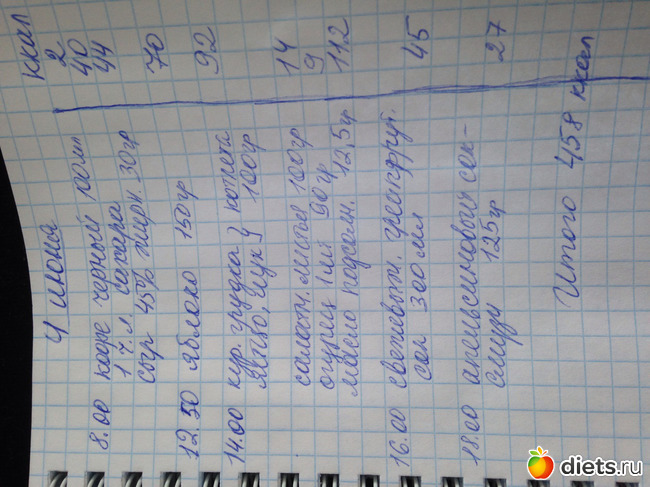 4 июня ккал
8.00 кофе черный 100мл 2
1 ч.л. сахара 40
сыр 45% жирн. 30гр 44
12.30 яблоко 150гр 70
14.00 кур. грудка } котлета 92
яйцо, лук } 100гр
салатн. листья 100гр 14
огурец 1шт 90гр 9
масло подсолн. 12,5гр 112
16.00 свежевыж. грейпфрут. 45
сок 300мл
18.00 апельсиновый сок- 27
смузи 125гр
Итого 458 ккал
diets.ru